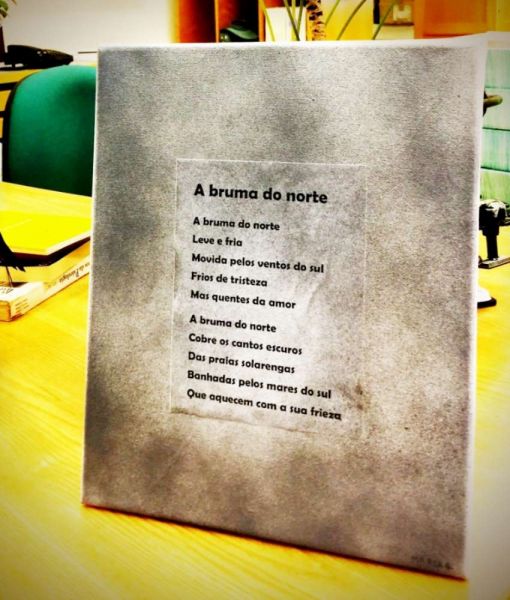 A bruma do norte
A bruma do norte
Leve e fria
Movida pelos ventos do sul
Frios de tristeza
Mas quentes da amor
A bruma do norte
Cobre os cantos escuros
Das praias solarengas
Banhadas pelos mares do sul
Que aquecem com a sua frieza